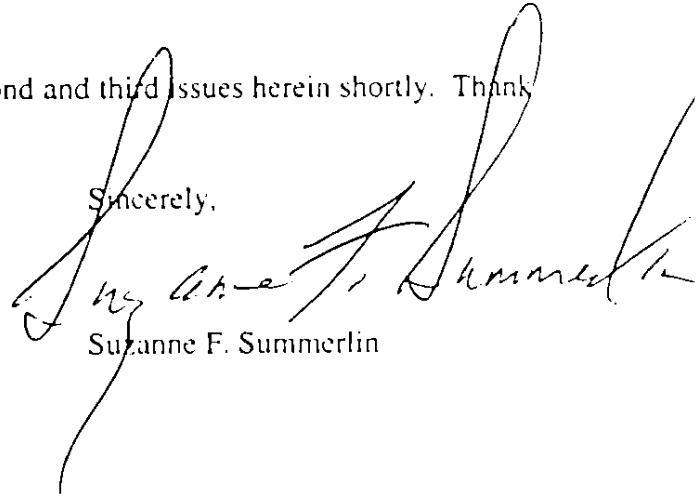 ond and third issues herein shortly. Thank
Sincerely,
Suzanne F. Summerlin
Suzanne F. Summerlin